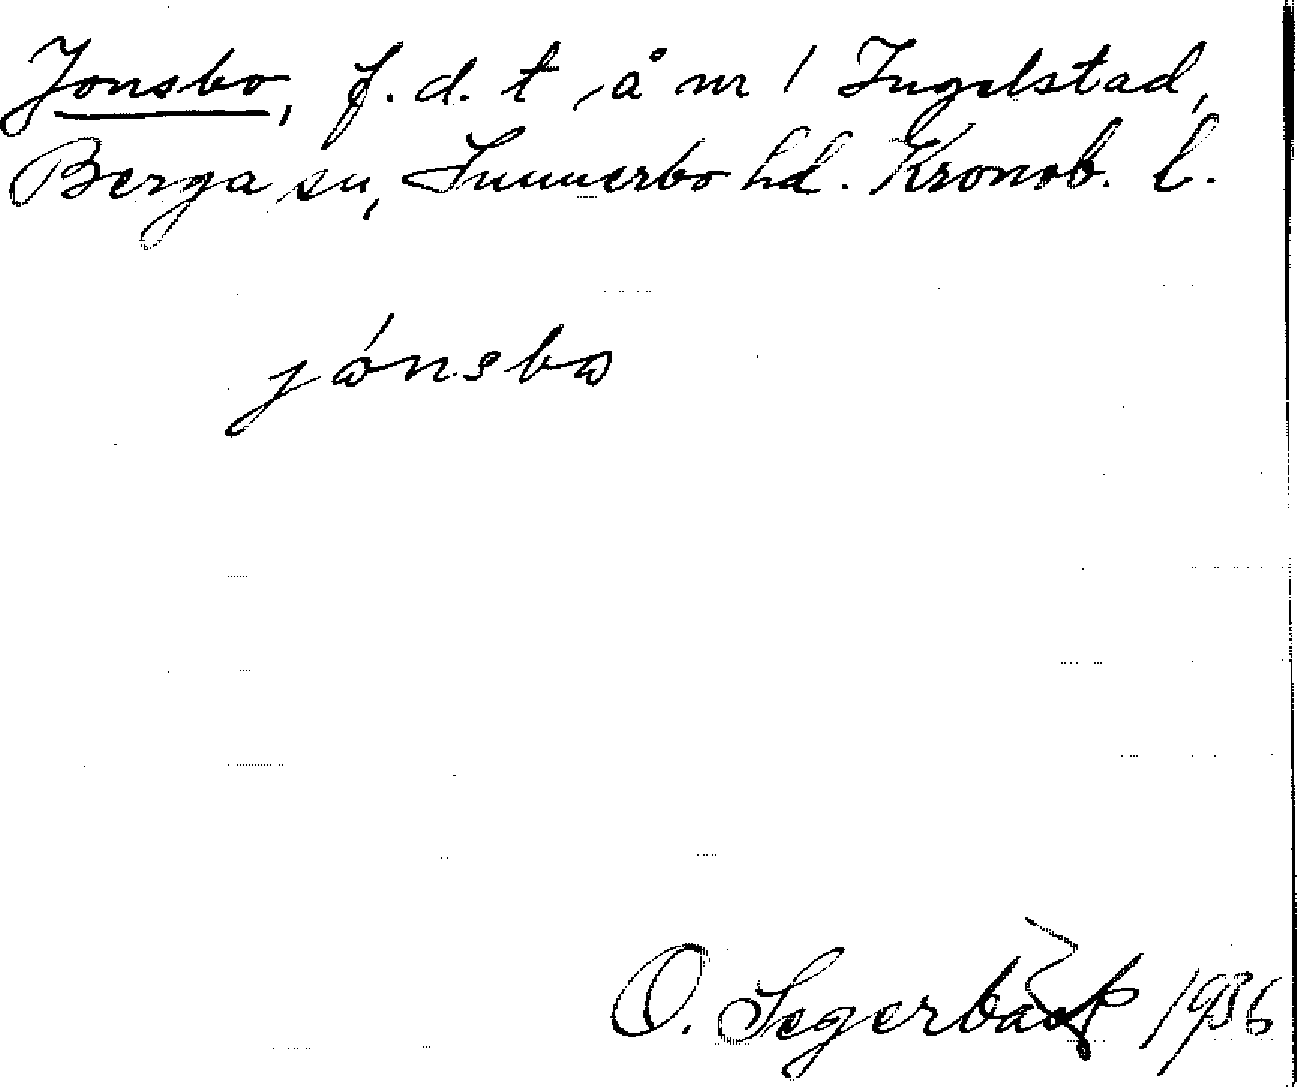 Jonsbo, f. d. t å nr 1 Ingelstad,
Berga sn, Sunnerbo hd. Kronob. l.
jónsbo
O. Segerbäck 1936